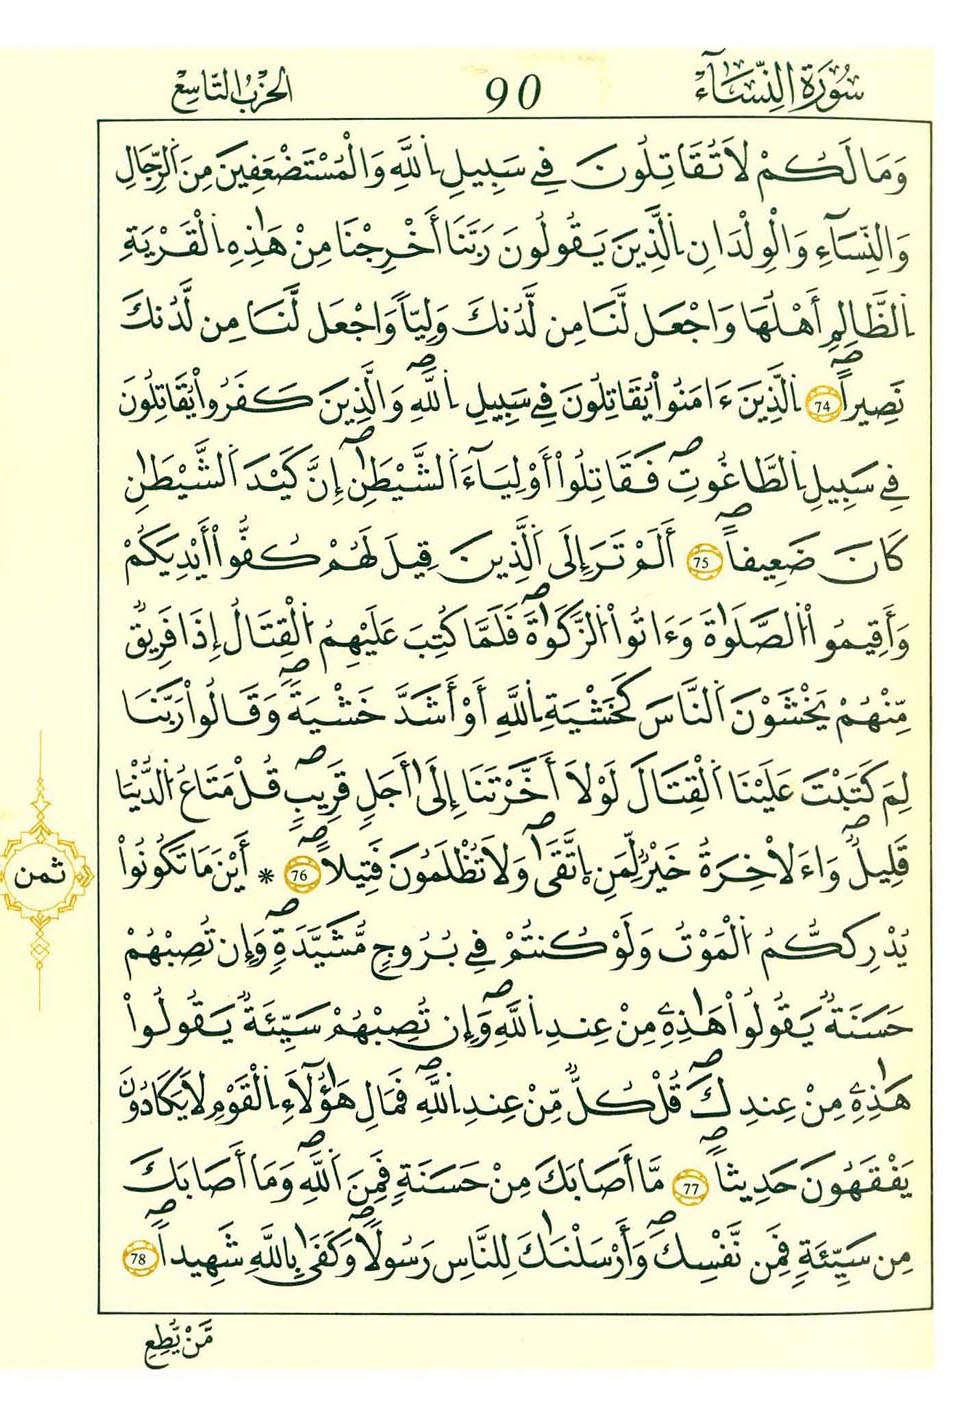 سُورَةُ النِّسَآءِ 90 الحِزْبُ التَّاسِع
وَمَا لَكُمْ لَا تُقَاتِلُونَ فِي سَبِيلِ اِ۬للَّهِ وَالْمُسْتَضْعَفِينَ مِنَ اَ۬لرِّجَالِ
وَالنِّسَآءِ وَالْوِلْدَانِ اِ۬لذِينَ يَقُولُونَ رَبَّنَا أَخْرِجْنَا مِنْ هَٰذِهِ اِ۬لْقَرْيَةِ
اِ۬لظَّالِمِ أَهْلُهَا وَاجْعَل لَّنَا مِن لَّدُنكَ وَلِيّاً وَاجْعَل لَّنَا مِن لَّدُنكَ
نَصِيراًۖ 74 اِ۬لذِينَ ءَامَنُواْ يُقَاتِلُونَ فِي سَبِيلِ اِ۬للَّهِۖ وَالذِينَ كَفَرُواْ يُقَاتِلُونَ
فِي سَبِيلِ اِ۬لطَّاغُوتِۖ فَقَاتِلُواْ أَوْلِيَآءَ اَ۬لشَّيْطَٰنِۖ إِنَّ كَيْدَ اَ۬لشَّيْطَٰنِ
كَانَ ضَعِيفاًۖ 75 أَلَمْ تَرَ إِلَى اَ۬لذِينَ قِيلَ لَهُمْ كُفُّواْ أَيْدِيَكُمْ
وَأَقِيمُواْ اُ۬لصَّلَوٰةَ وَءَاتُواْ اُ۬لزَّكَوٰةَۖ فَلَمَّا كُتِبَ عَلَيْهِمُ اُ۬لْقِتَالُ إِذَا فَرِيقٌ
مِّنْهُمْ يَخْشَوْنَ اَ۬لنَّاسَ كَخَشْيَةِ اِ۬للَّهِ أَوْ أَشَدَّ خَشْيَةًۖ وَقَالُواْ رَبَّنَا
لِمَ كَتَبْتَ عَلَيْنَا اَ۬لْقِتَالَ لَوْلَا أَخَّرْتَنَا إِلَىٰ أَجَلٍ قَرِيبٍۖ قُلْ مَتَاعُ اُ۬لدُّنْيَا
قَلِيلٌۖ وَاءَلَاخِرَةُ خَيْرٌ لِّمَنِ اِ۪تَّقَىٰۖ وَلَا تُظْلَمُونَ فَتِيلاًۖ 76 * أَيْنَمَا تَكُونُواْ
يُدْرِككُّمُ اُ۬لْمَوْتُ وَلَوْ كُنتُمْ فِي بُرُوجٍ مُّشَيَّدَةٍۖ وَإِن تُصِبْهُمْ
حَسَنَةٌ يَقُولُواْ هَٰذِهِۦ مِنْ عِندِ اِ۬للَّهِۖ وَإِن تُصِبْهُمْ سَيِّئَةٌ يَقُولُواْ
هَٰذِهِۦ مِنْ عِندِكَۖ قُلْ كُلٌّ مِّنْ عِندِ اِ۬للَّهِۖ فَمَالِ هَٰؤُلَآءِ اِ۬لْقَوْمِ لَا يَكَادُونَ
يَفْقَهُونَ حَدِيثاًۖ 77 مَّا أَصَابَكَ مِنْ حَسَنَةٍ فَمِنَ اَ۬للَّهِۖ وَمَا أَصَابَكَ
مِن سَيِّئَةٍ فَمِن نَّفْسِكَۖ وَأَرْسَلْنَٰكَ لِلنَّاسِ رَسُولاًۖ وَكَفَىٰ بِاللَّهِ شَهِيداًۖ 78
ثمن
مَّنْ يُّطِعِ